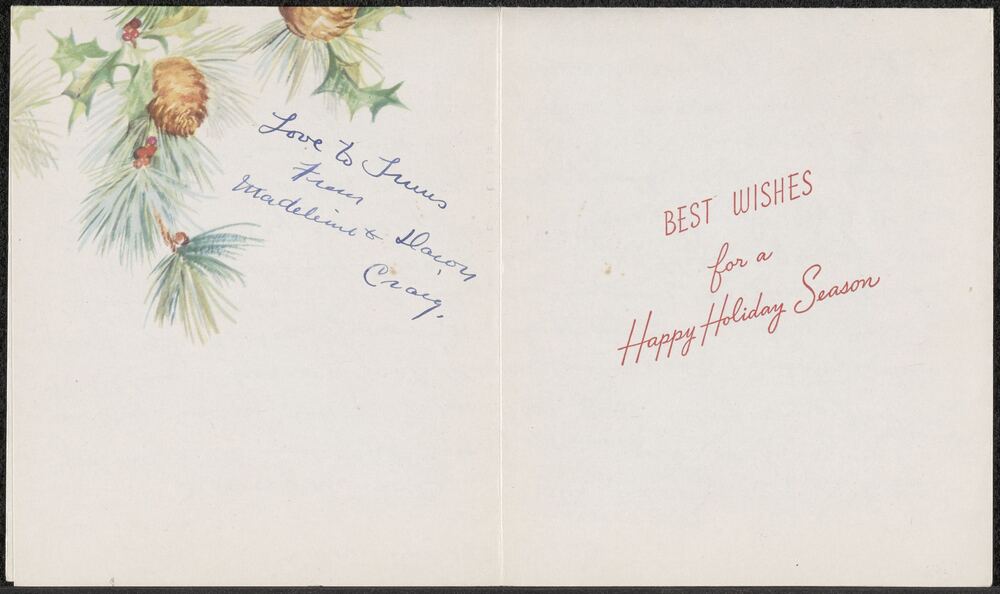 Love to
From
Madeline &
Craig.
BEST WISHES
for a
Happy Holiday Season